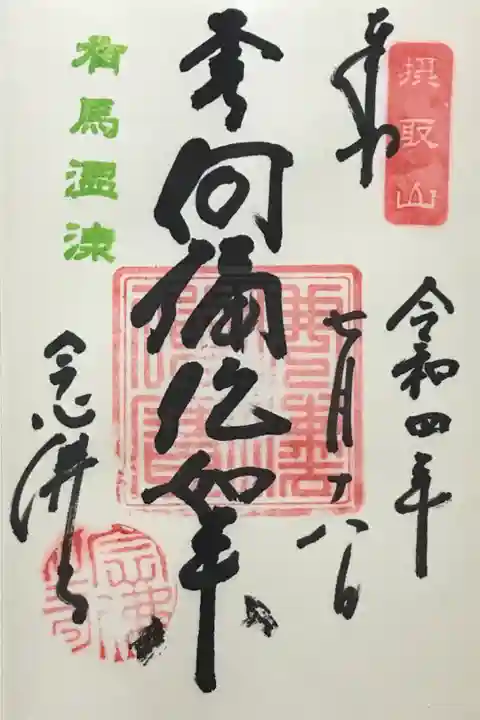 摂取山
奉拝
令和四年
七月十八日
阿弥陀如来
念佛寺
有馬温泉